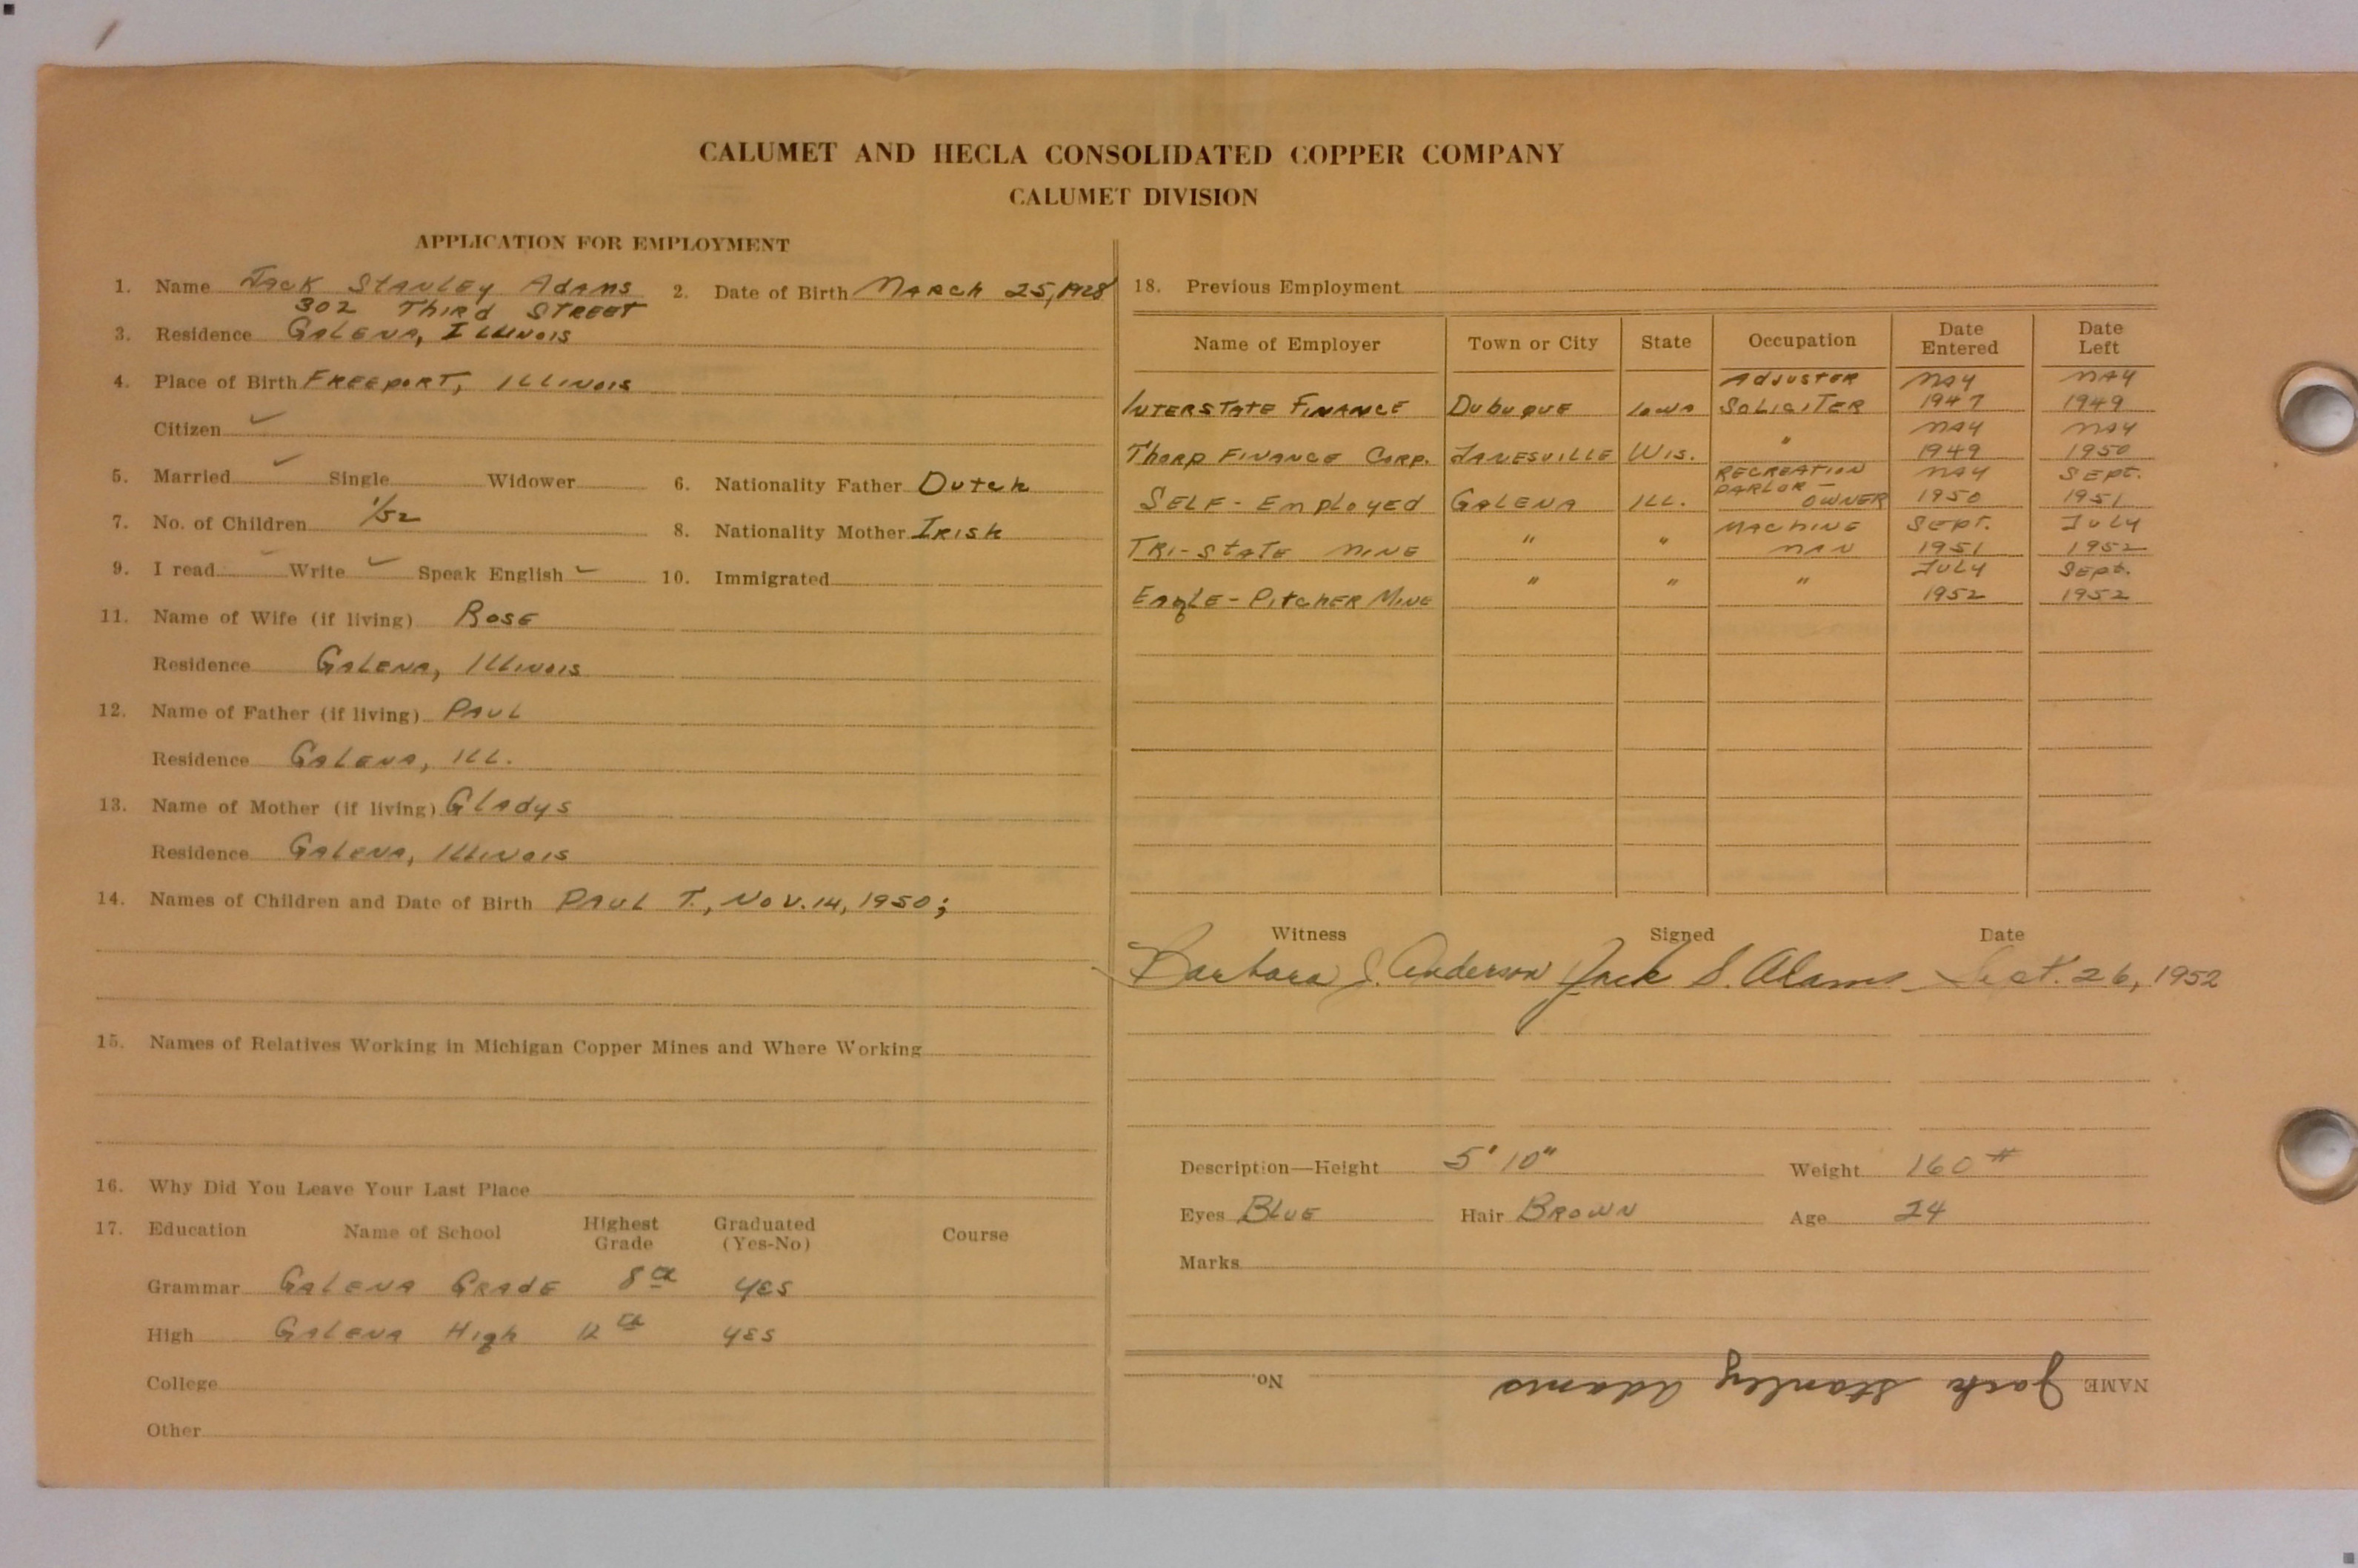 CALUMET AND HECLA CONSOLIDATED COPPER COMPANY
CALUMET DIVISION
APPLICATION FOR EMPLOYMENT
1. Name Jack Stanley Adams 2. Date of Birth March 25, 1928
302 Third Street
3. Residence Galena, Illinois
4. Place of Birth Freeport, Illinois
Citizen ✓
5. Married ✓ Single Widower 6. Nationality Father Dutch
7. No. of Children 1/52 8. Nationality Mother Irish
9. I read ✓ Write ✓ Speak English ✓ 10. Immigrated
11. Name of Wife (if living) Rose
Residence Galena, Illinois
12. Name of Father (if living) Paul
Residence Galena, Ill.
13. Name of Mother (if living) Gladys
Residence Galena, Illinois
14. Names of Children and Date of Birth Paul T., Nov. 14, 1950;
15. Names of Relatives Working in Michigan Copper Mines and Where Working
16. Why Did You Leave Your Last Place
17. Education Name of School Highest Grade Graduated (Yes-No) Course
Grammar Galena Grade 8th Yes
High Galena High 12th Yes
College
Other
18. Previous Employment
Name of Employer Town or City State Occupation Date Entered Date Left
Interstate Finance Dubuque Iowa Adjuster Soliciter May 1947 May 1949
Thorp Finance Corp. Janesville Wis. " May 1949 May 1950
Self-Employed Galena Ill. Recreation Parlor - Owner May 1950 Sept. 1951
Tri-State Mine " " Machine Man Sept. 1951 July 1952
Eagle-Pitcher Mine " " " July 1952 Sept. 1952
Witness Signed Date
Barbara J. Anderson Jack S. Adams Sept. 26, 1952
Description—Height 5' 10" Weight 160 #
Eyes Blue Hair Brown Age 24
Marks
NAME Jack Stanley Adams No.